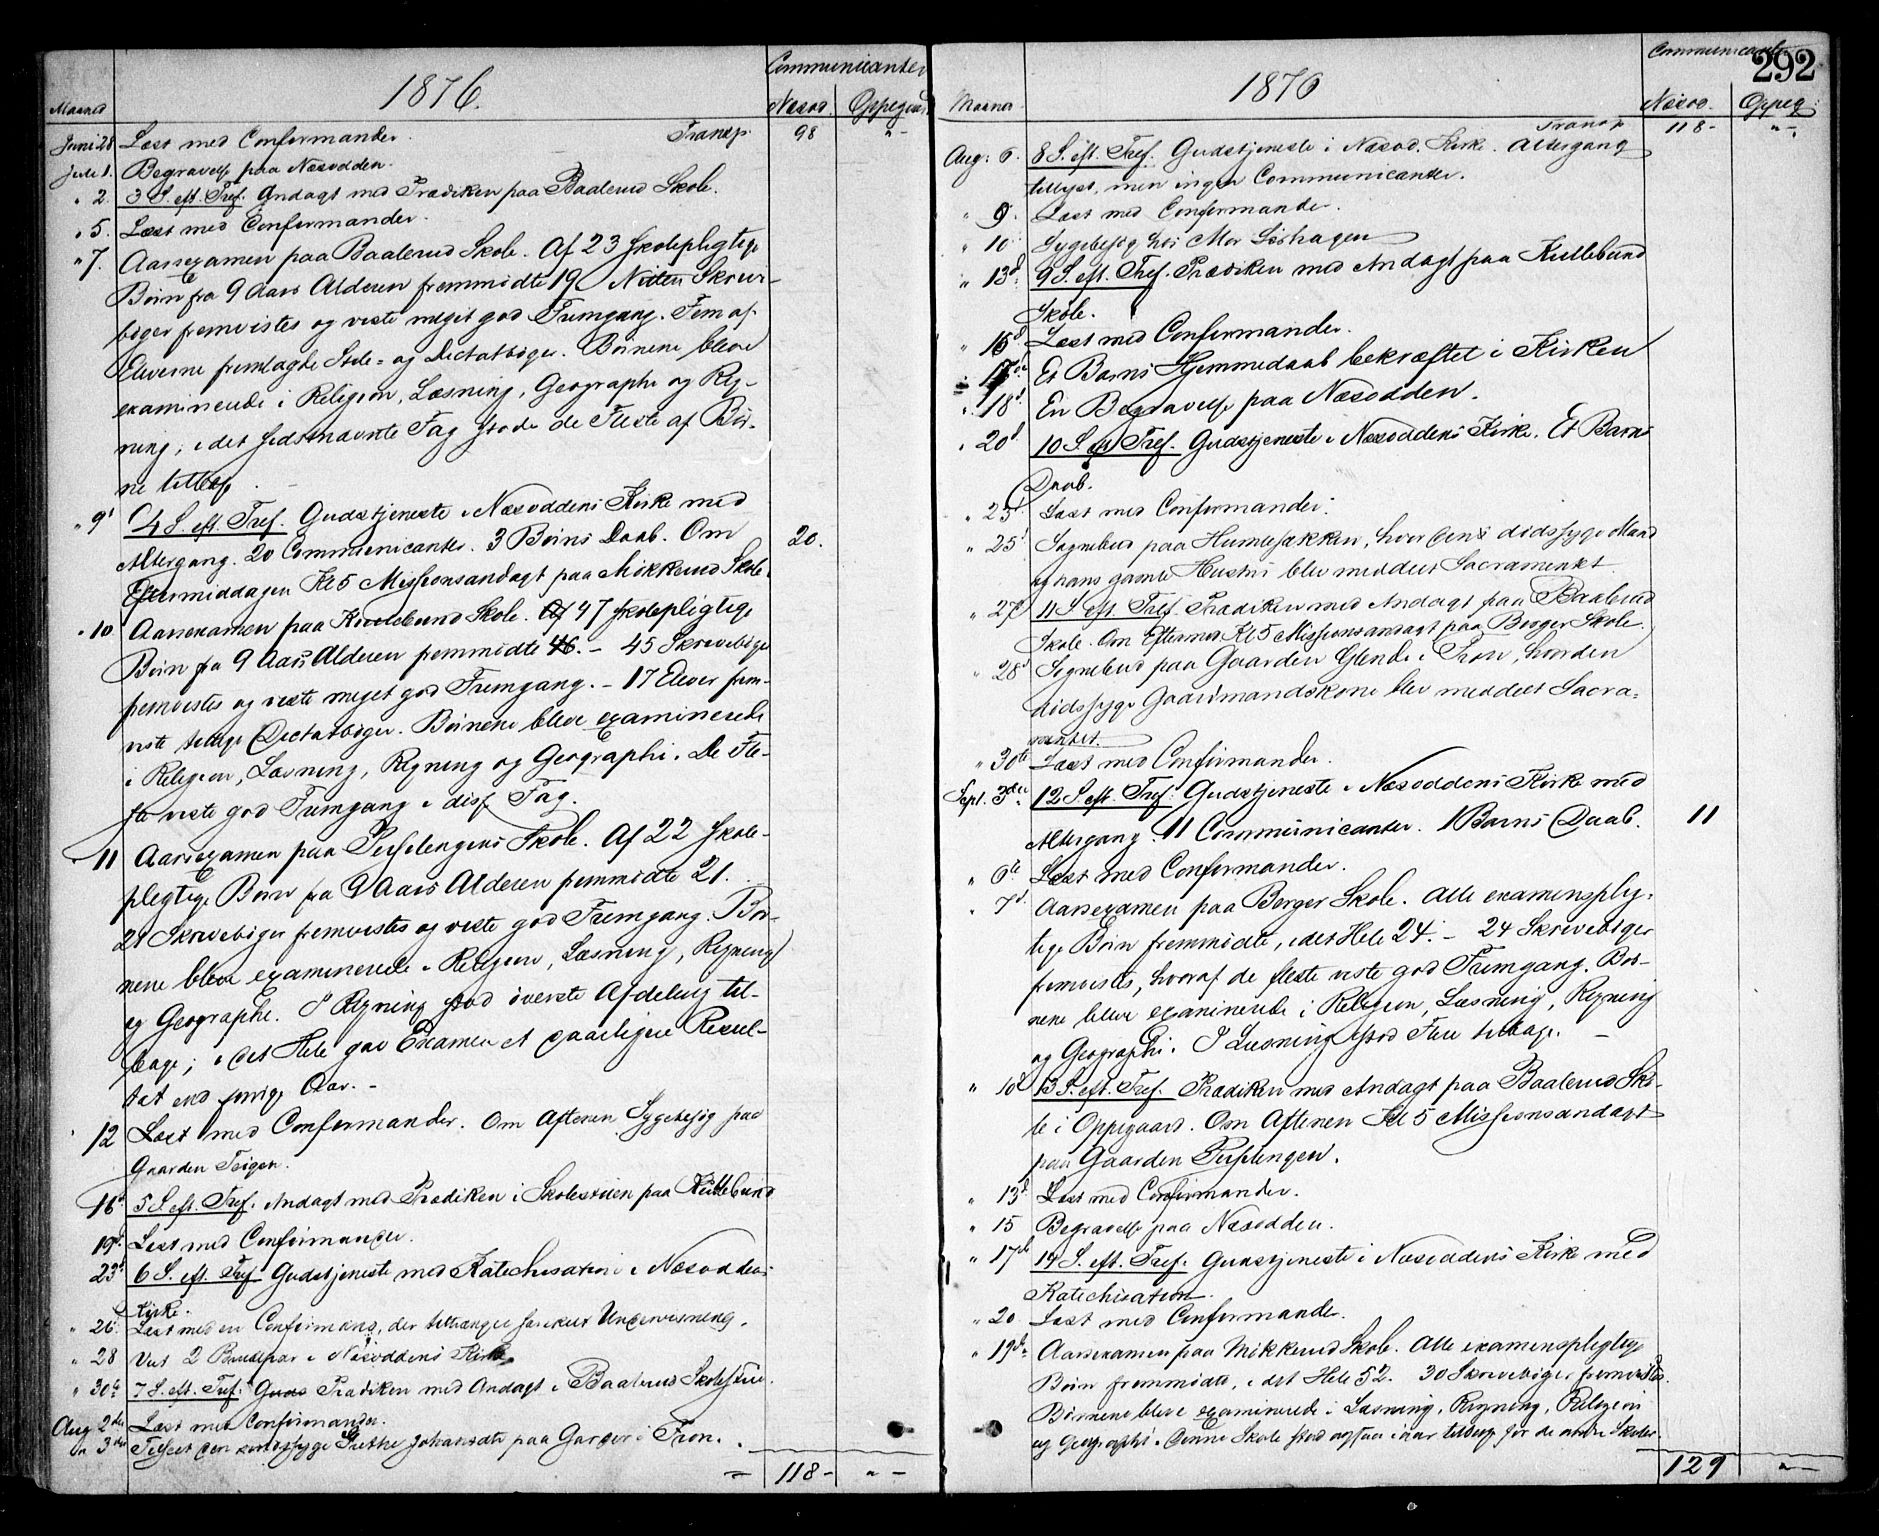 1876.
Communicanter
Maaned
Næsod.
Oppegaard
Juni 28 Læst med Confirmander. Transp. 98 "-
Juli 1. Begravelse paa Næsodden.
" 2. 3 S. eft. Tref. Andagt med Prædiken paa Baalerud Skole.
" 5. Læst med Confirmander.
" 7. Aarsexamen paa Baalerud Skole. Af 23 skolepligtige
Børn fra 9 Aars Alderen fremmødte 19. Nitten Skrive-
bøger fremvistes og viste meget god Fremgang. Fem af
Eleverne fremlagde Stile- og Dictatbøger. Børnene bleve
examinerede i Religion, Læsning, Geographi og Reg-
ning; i det sidstnævnte Fag stode de Fleste af Bør-
ne tilbage.
" 9d 4 S. eft. Tref. Gudstjeneste i Næsoddens Kirke med
Altergang. 20 Communicanter. 3 Børns Daab. Om 20.
Eftermiddagen Kl 5 Missionsandagt paa Mikkerud Skole.
" 10 Aarsexamen paa Kullebund Skole. Af 47 skolepligtige
Børn fra 9 Aars Alderen fremmødte 46. - 45 Skrivebøger
fremvistes og viste meget god Fremgang. - 17 Elever frem-
viste tillige Dictatbøger. Børnene bleve examinerede
i Religion, Læsning, Regning og Geographi. De Fle-
ste viste god Fremgang i disse Fag.
" 11 Aarsexamen paa Skole. Af 22 skole-
pligtige Børn fra 9 Aars Alderen fremmødte 21.
21 Skrivebøger fremvistes og viste god Fremgang. Bør-
nene bleve examinerede i Religion, Læsning, Regning
og Geographi. I Regning stod øverste Afdeling til-
bage; i det Hele gav Examen et daarligere Resul-
tat end forrige Aar. -
" 12 Læst med Confirmander. Om Aftenen Sygebesøg paa
Gaarden Teigen.
" 16d 5 S. eft. Tref. Andagt med Prædiken i Skolestuen paa Kullebund
19d Læst med Confirmander.
23d 6 S. eft. Tref. Gudstjeneste med Katechisation i Næsoddens
Kirke.
" 26 Læst med en Confirmand, der tiltrænger særskilt Undervisning.
" 28 Viet 2 Brudepar i Næsoddens Kirke
" 30te 7 S. eft. Tref. Guds Prædiken med Andagt i Baalerud Skolestue.
Aug 2den Læst med Confirmander.
" 3die Tilseet den sindssyge Grethe Johansdtr paa i Fron.
118 - " -
1876
Communicanter
292
Maaned
Næsod.
Oppeg.
Transp 118 - " -
Aug: 6. 8 S. eft. Tref. Gudstjeneste i Næsod. Kirke. Altergang
tillyst, men ingen Communicanter.
" 9. Læst med Confirmander.
" 10. Sygebesøg hos Mor
" 13d 9 S. eft. Tref. Prædiken med Andagt paa Kullebund
Skole.
" 16d Læst med Confirmander.
" 17d Et Barns Hjemmedaab bekræftet i Kirken
" 18d En Begravelse paa Næsodden.
" 20d 10 S. eft. Tref. Gudstjeneste i Næsoddens Kirke. Et Barns
Daab.
" 23d Læst med Confirmander.
" 25d Sognebud paa Humlesækken, hvor den dødssyge Mand
og hans gamle Hustru blev meddelt Sacramentet.
" 27d 11 S. eft. Tref. Prædiken med Andagt paa Baalerud
Skole. Om Efterm. Kl 5 Missionsandagt paa Berger Skole.
" 28d Sognebud paa Gaarden Glende i Fron, hvor den
dødssyge Gaardmandskone blev meddelt Sacra-
mentet.
" 30te Læst med Confirmander.
Sept. 3die 12 S. eft. Tref. Gudstjeneste i Næsoddens Kirke med
Altergang. 11 Communicanter. 1 Barns Daab. 11
" 6te Læst med Confirmander.
" 7d Aarsexamen paa Berger Skole. Alle examensplig-
tige Børn fremmødte, i det Hele 24. - 24 Skrivebøger
fremvistes, hvoraf de fleste viste god Fremgang. Bør-
nene bleve examinerede i Religion, Læsning, Regning
og Geographi. I Læsning stod Flere tilbage. -
" 10d 13 S. eft. Tref. Prædiken med Andagt paa Baalerud Sko-
le i Oppegaard. Om Aftenen Kl 5 Missionsandagt
paa Gaarden
" 13d Læst med Confirmander.
" 15 Begravelse paa Næsodden.
" 17de 14 S. eft. Tref. Gudstjeneste i Næsoddens Kirke med
Katechisation.
" 20 Læst med Confirmander.
" 19de Aarsexamen paa Mikkerud Skole. Alle examenspligtige
Børn fremmødte, i det Hele 52. 30 Skrivebøger fremvistes.
Børnene bleve examinerede i Læsning, Regning, Religion
og Geographi. Denne Skole stod ogsaa i Aar tilbage for de andre Skoler
129 " -